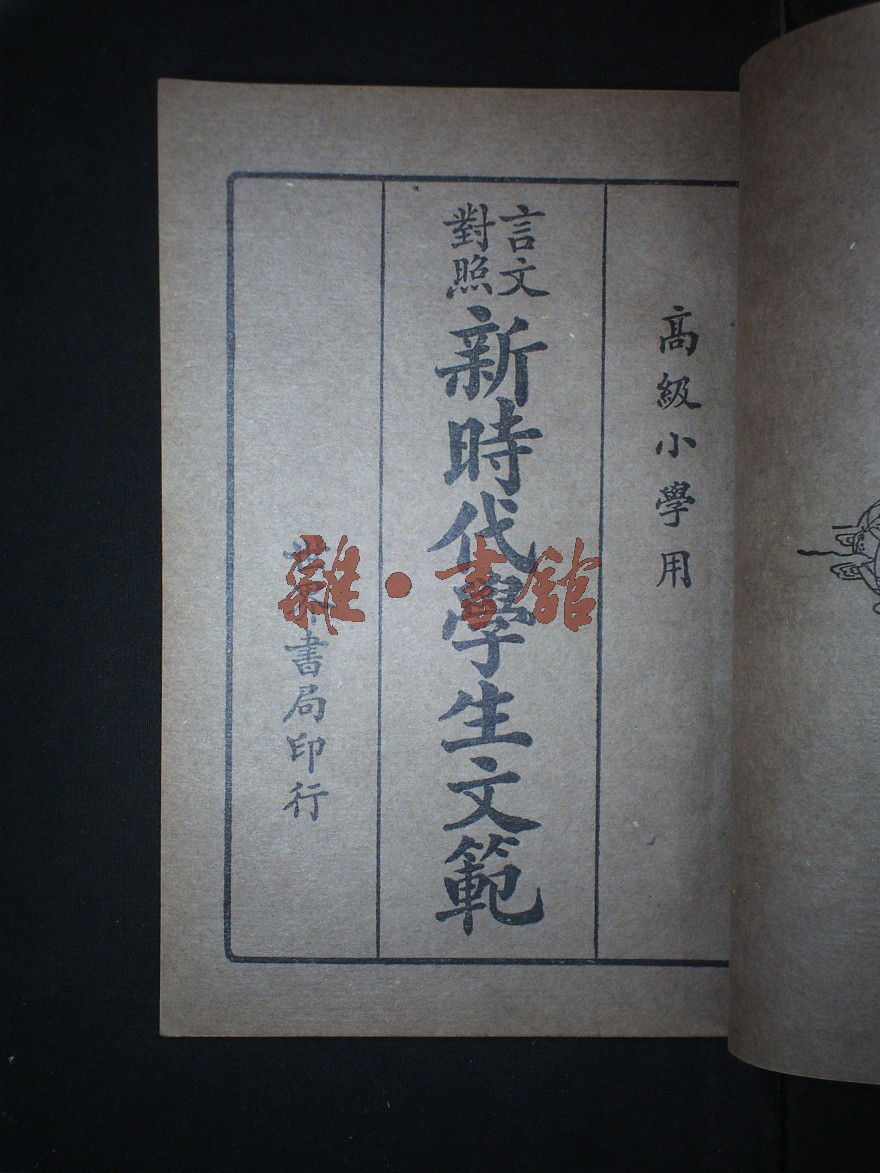 高級小學用
言文
對照
新時代學生文範
世界書局印行
雜·書舘